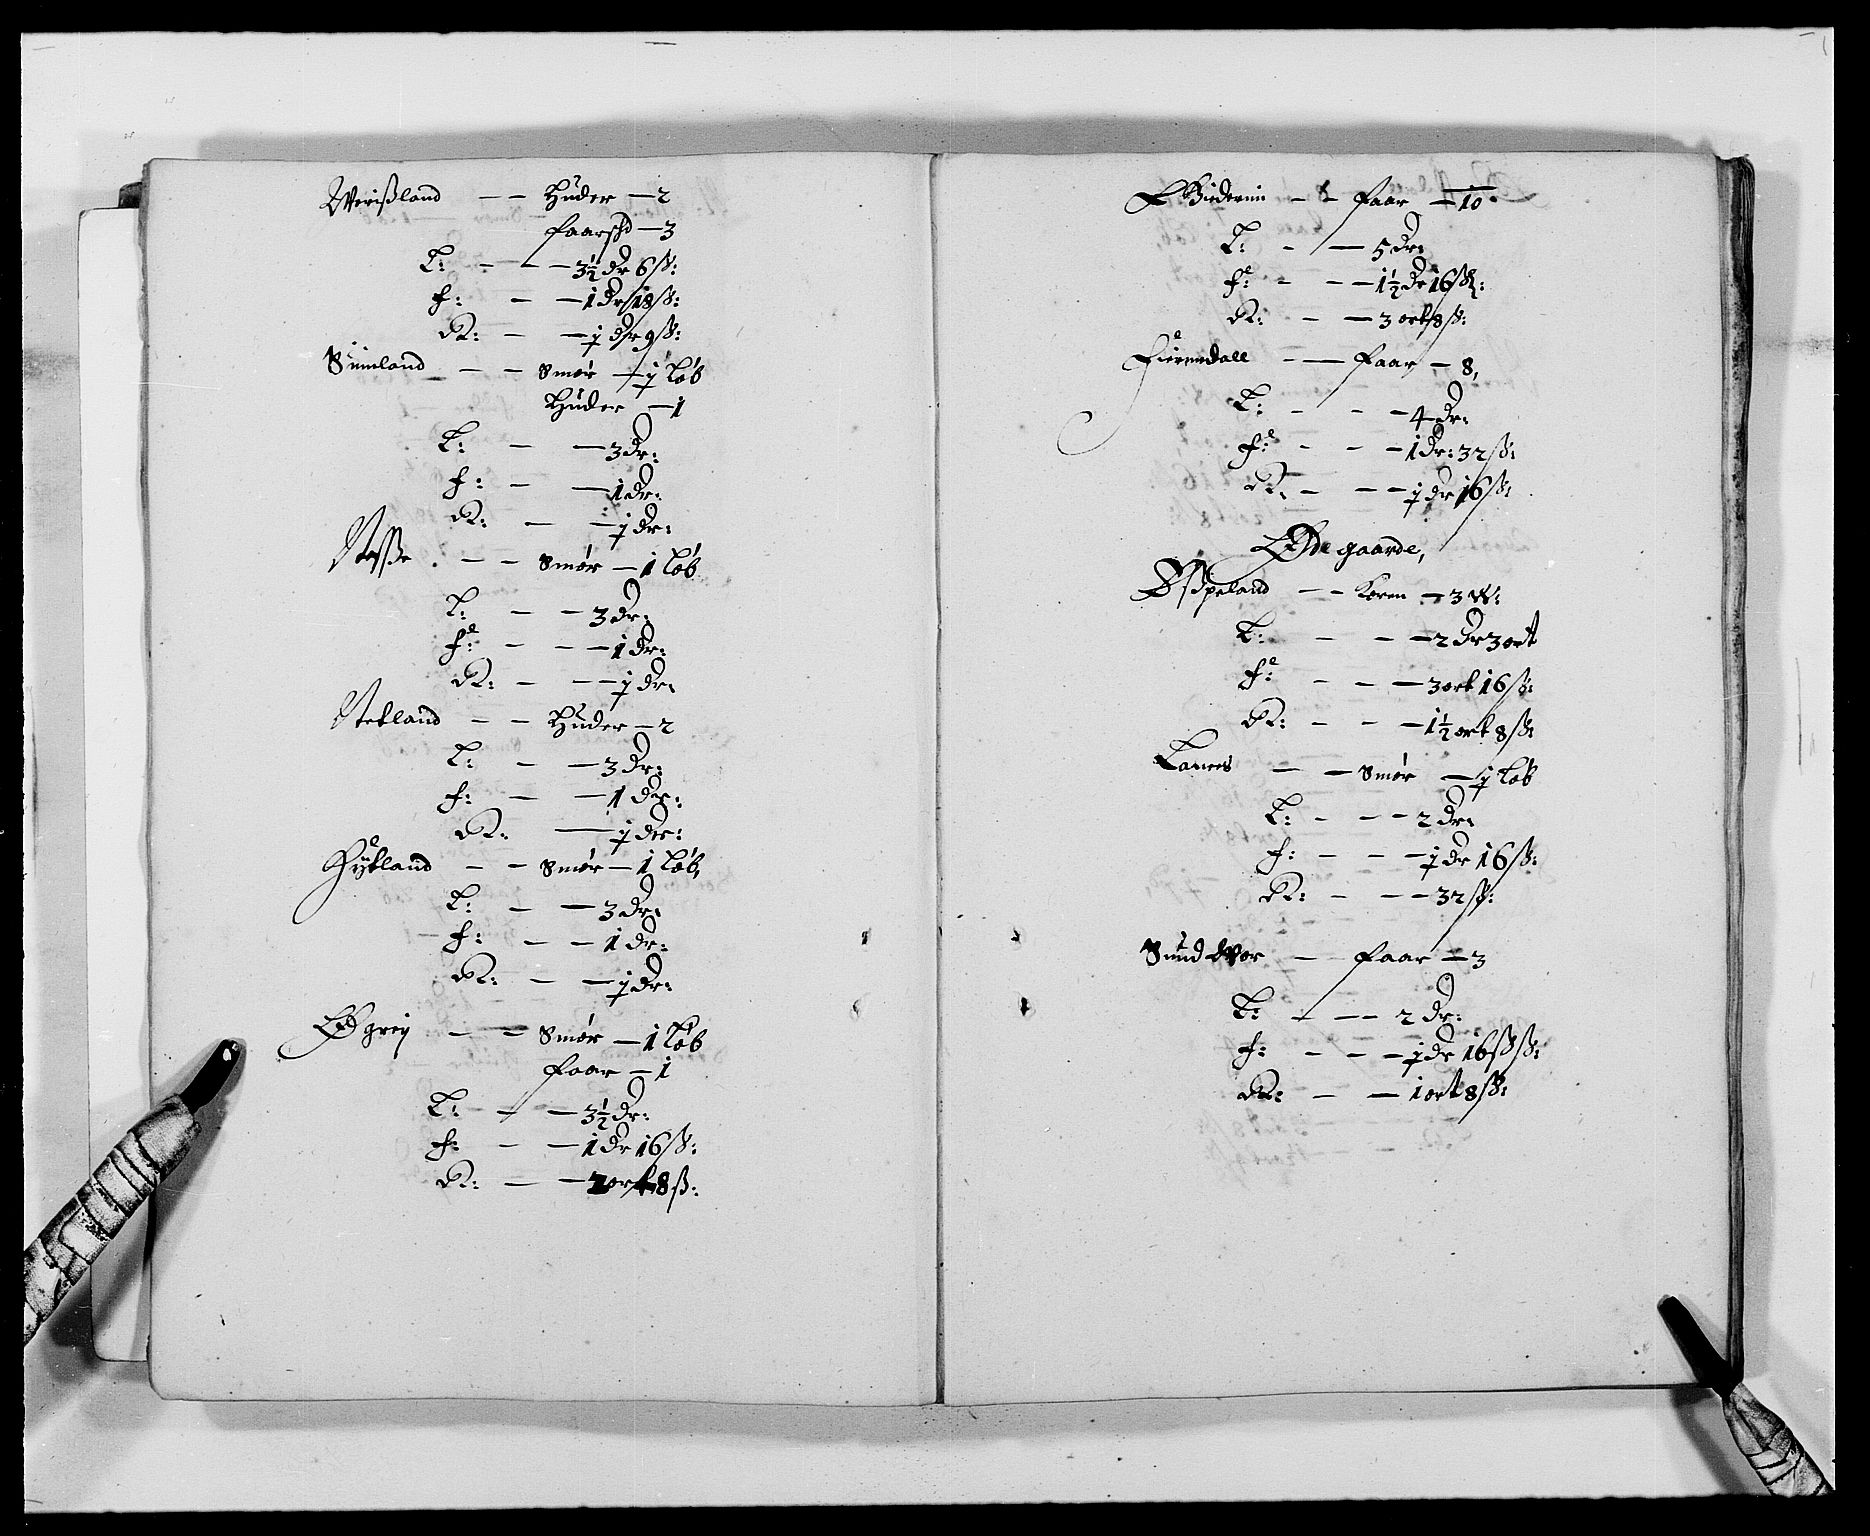 Werißland - - Huder - 2
faarskd - 3
L: - - - 3½ dr 6 ß:
f: - - 1 dr 18 ß:
R: - - ½ dr 9 ß:
Sumland - - Smør - ½ Løb
Huder - 1
L: - - 3 dr:
f: - - 1 dr:
R: - - ½ dr:
Nesße - - Smør - 1 Løb
L: - - 3 dr:
f: - - - 1 dr:
R: - - - ½ dr:
Netland - - Huder - 2
L: - - 3 dr:
f: - - 1 der:
R: - ½ der:
Hytland - - Smør - 1 Løb,
L: - - 3 dr:
f: - - 1 dr:
R: - - ½ dr:
Øgreij - - Smør - 1 Løb
Faar - 1
L: - - 3½ dr:
f: - - 1 dr 16 ß:
R: - - ort 8 ß:
Faar - 10
L: - - 5 dr:
f: - - - 1½ dr 16 ß:
R: - - 3 ort 8 ß:
Fierendall - - Faar - 8,
L: - - - 4 dr:
f: - - - 1 dr: 32 ß:
R: - - - ½ dr 16 ß:
Øde gaarde,
Øßpeland - - Koren - 3 W:
L: - - - 2 dr 3 ort
f: - - - 3 ort 16 ß:
R: - - - 1½ ort 8 ß:
Lanes - - Smør - ½ Løb
L: - - - 2 dr:
f: - - - ½ dr 16 ß:
R: - - - 32 ß:
Sund Wor - Faar - 3
L: - - - 2 dr:
f: - - - ½ dr 16 ß ß:
R: - - 1 ort 8 ß: